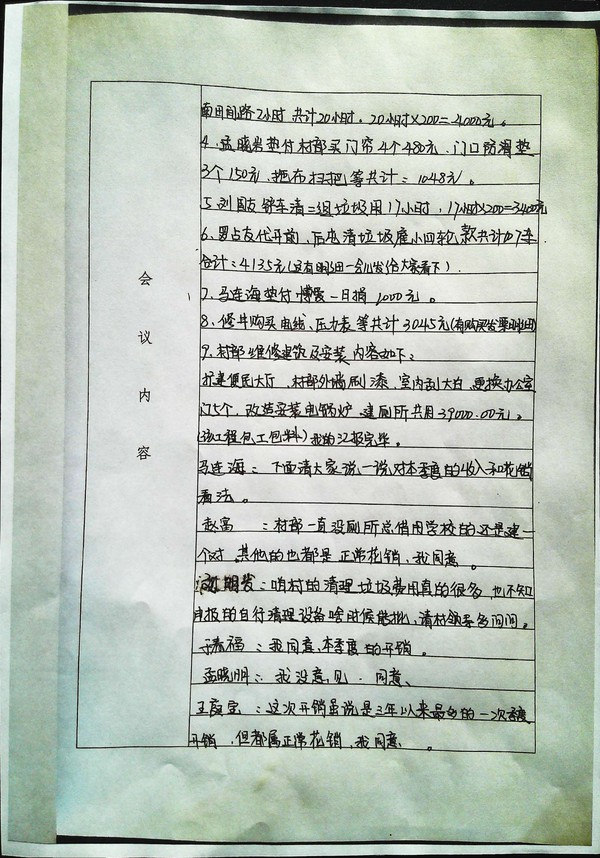 会议内容
南田间路2小时 共计20小时。20小时×200=4000元。
4、孟晓岩垫付村部买门帘4个480元、门口防滑垫
3个150元、拖布扫把等共计=1048元。
5、刘国友铲车清二组垃圾用17小时,17小时×200=3400元
6、罗占友代开前、后屯清垃圾雇小四轮款共计 车
合计=4135元(没有明细一会儿发给大家看下)
7、马连海垫付博爱一日捐1000元。
8、修井购买电线、压力表等共计3045元(有购买发票明细)
9、村部维修建筑及安装内容如下:
扩建便民大厅、村部外墙刷漆、室内刮大白、更换办公室
门5个、改造安装电锅炉、建厕所共用39000.00元。
(该工程包工包料)我的汇报完毕。
马连海:下面请大家说一说对本季度的收入和花销
看法。
赵富:村部一直没厕所总借用学校的还是建一
个对。其他的也都是正常花销、我同意。
期发:咱村的清理垃圾费用真的很多,也不知
申报的自行清理设备啥时候能批,请村领导多问问。
于春福:我同意、本季度的开销。
孟晓明:我没意见、同意、
王 宝:这次开销虽说是三年以来最多的一次季度
开销,但都属正常花销,我同意。